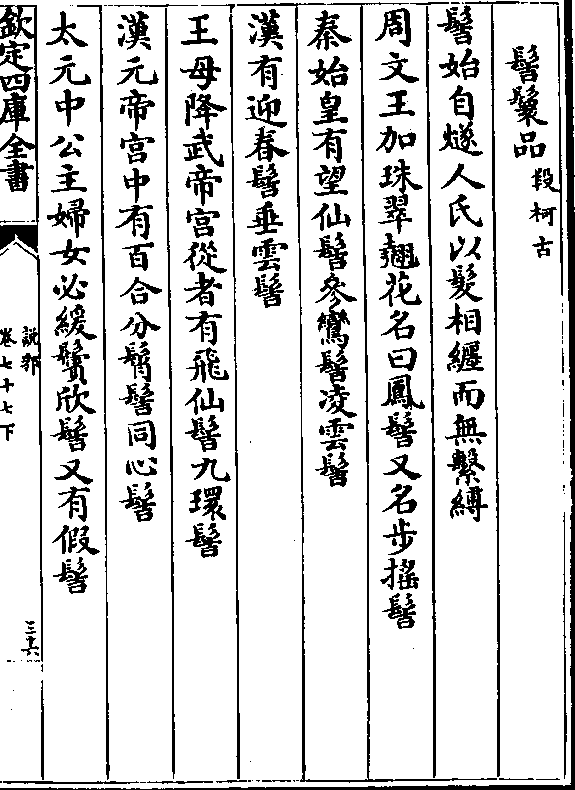 髻鬟品 段柯古
髻始自燧人氏以髮相纏而無繫縛
周文王加珠翠翹花名曰鳳髻又名步搖髻
秦始皇有望仙髻參鸞髻凌雲髻
漢有迎春髻垂雲髻
王母降武帝宮從者有飛仙髻九環髻
漢元帝宮中有百合分髾髻同心髻
太元中公主婦女必緩鬢欣髻又有假髻
欽定四庫全書
説郛
卷七十七下
三十六